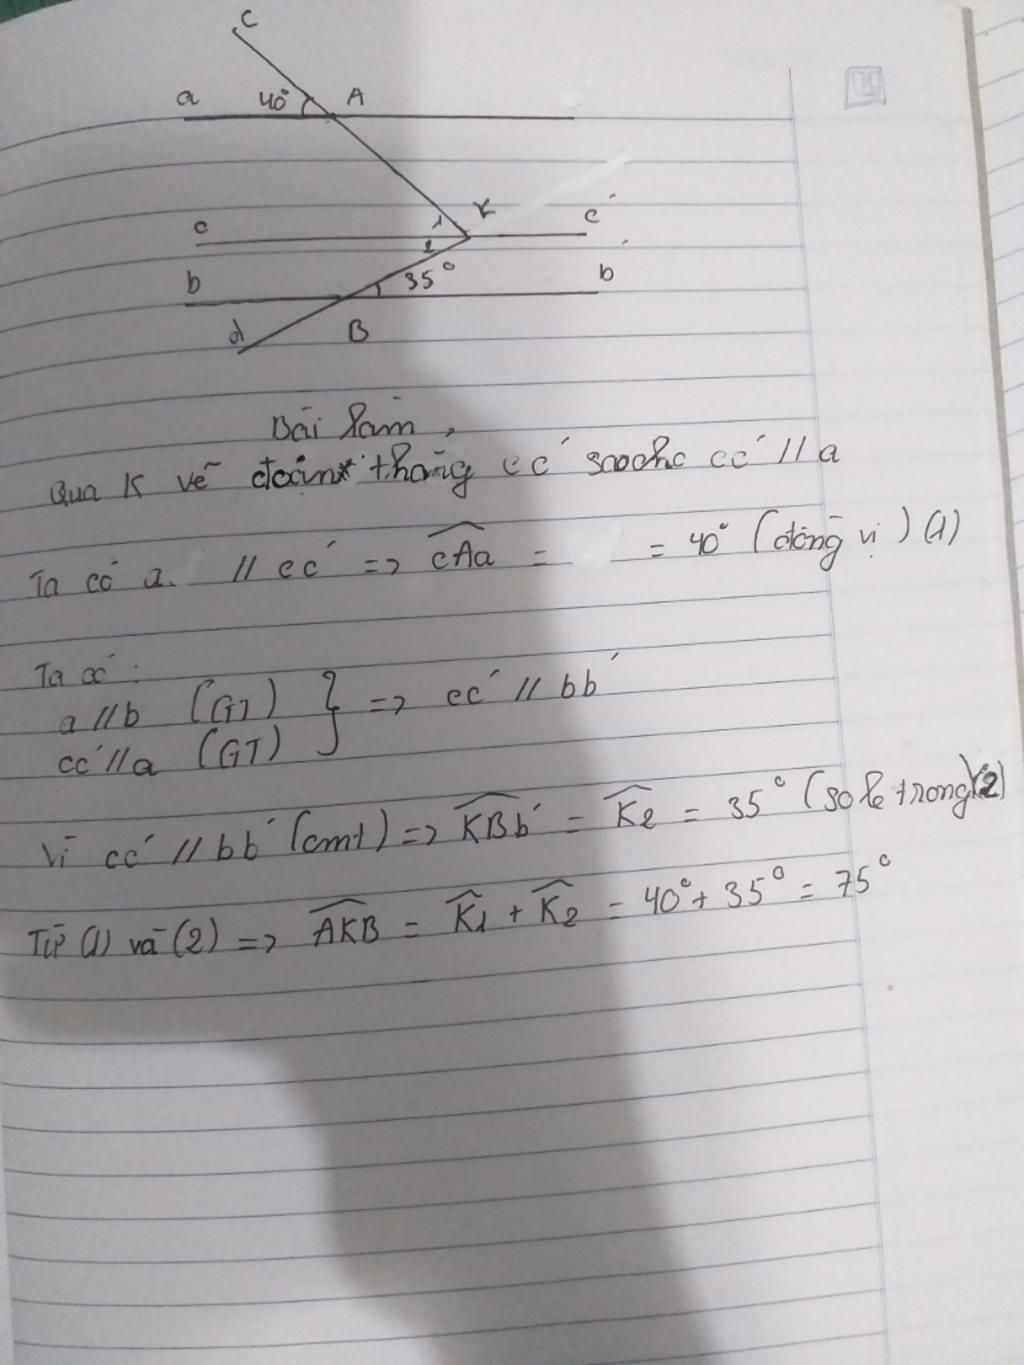 C
a 40° A
K
1
c c'
2
b 35° b'
d B
Bài làm
Qua K vẽ đoạn thẳng cc' saocho cc' // a
Ta có a // cc' => cAa = = 40° (đồng vị) (1)
Ta có :
a // b (GT) } => cc' // bb'
cc' // a (GT)
Vì cc' // bb' (cmt) => KBb' = K2 = 35° (so le trong) (2)
Từ (1) và (2) => AKB = K1 + K2 = 40° + 35° = 75°